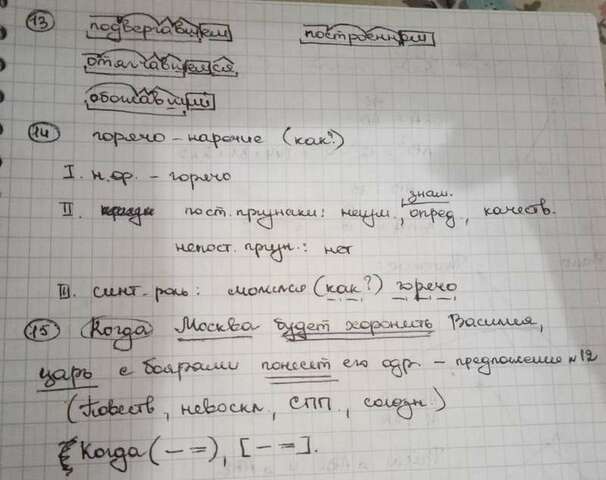 13 подвергавшем построенном
отличавшемся
обожавшим
14 горячо - наречие (как?)
I. н.ф. - горячо
знам.
II. пост. признаки: неизм., опред., качеств.
непост. призн.: нет
III. синт. роль: молился (как?) горячо
15 Когда Москва будет хоронить Василия,
царь с боярами понесёт его одр. - предложение №12
(Повеств., невоскл., СПП, союзн.)
Когда ( - = ), [ - = ].